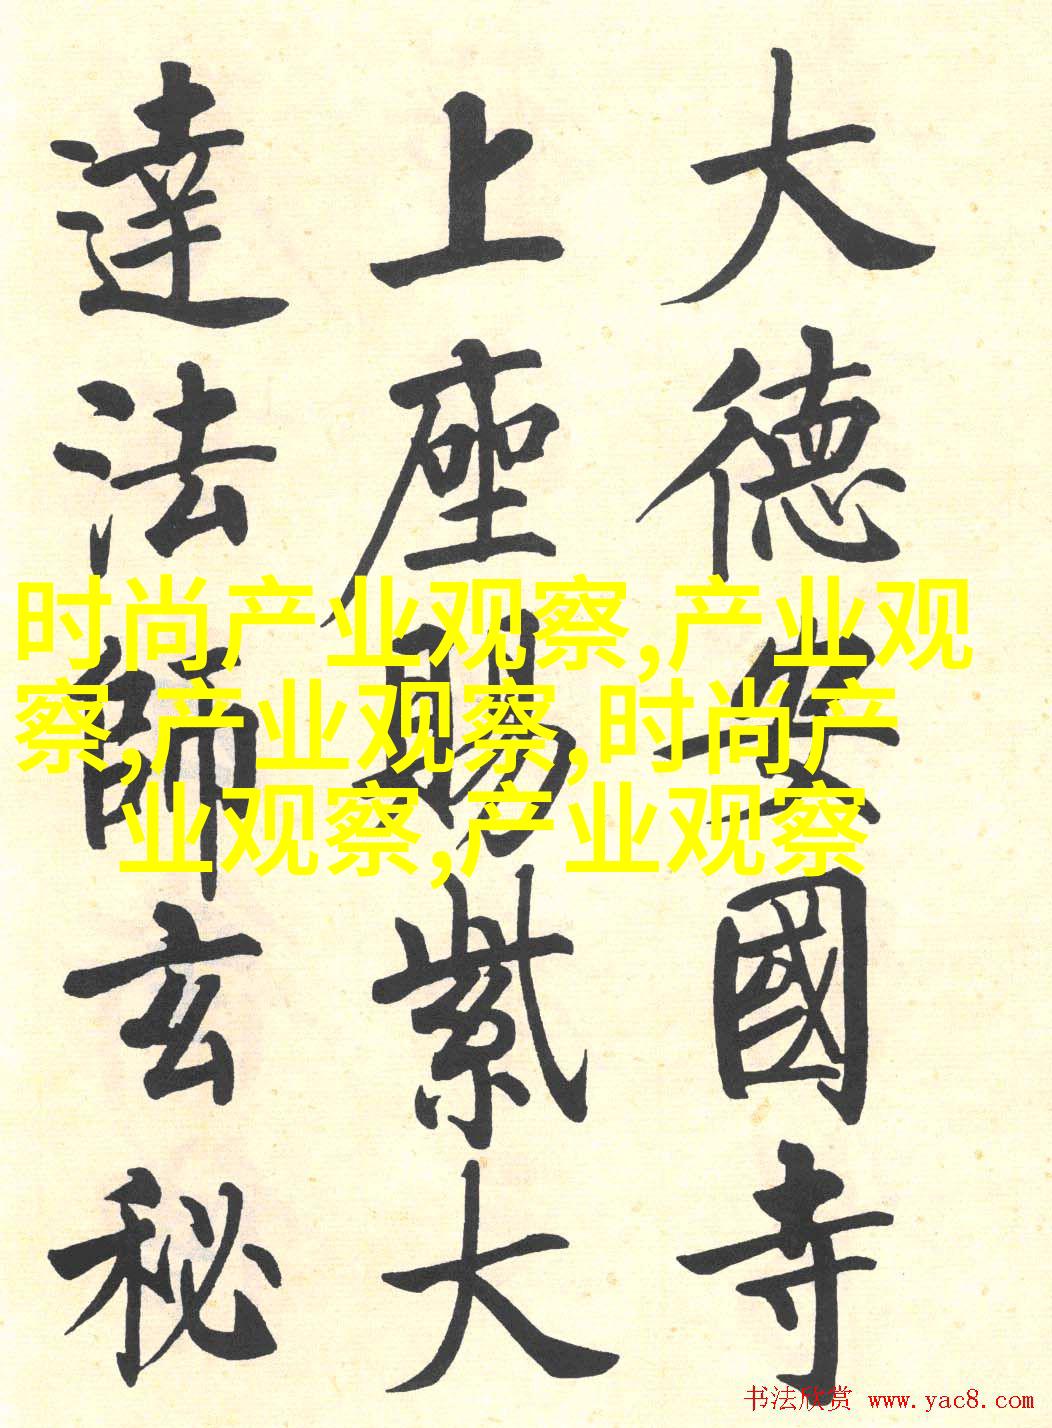 大德安國寺
上座賜紫大
達法師玄秘
时尚产业观察,产业观
察,产业观察,时尚产
业观察,产业观察
书法欣赏 www.yac8.com